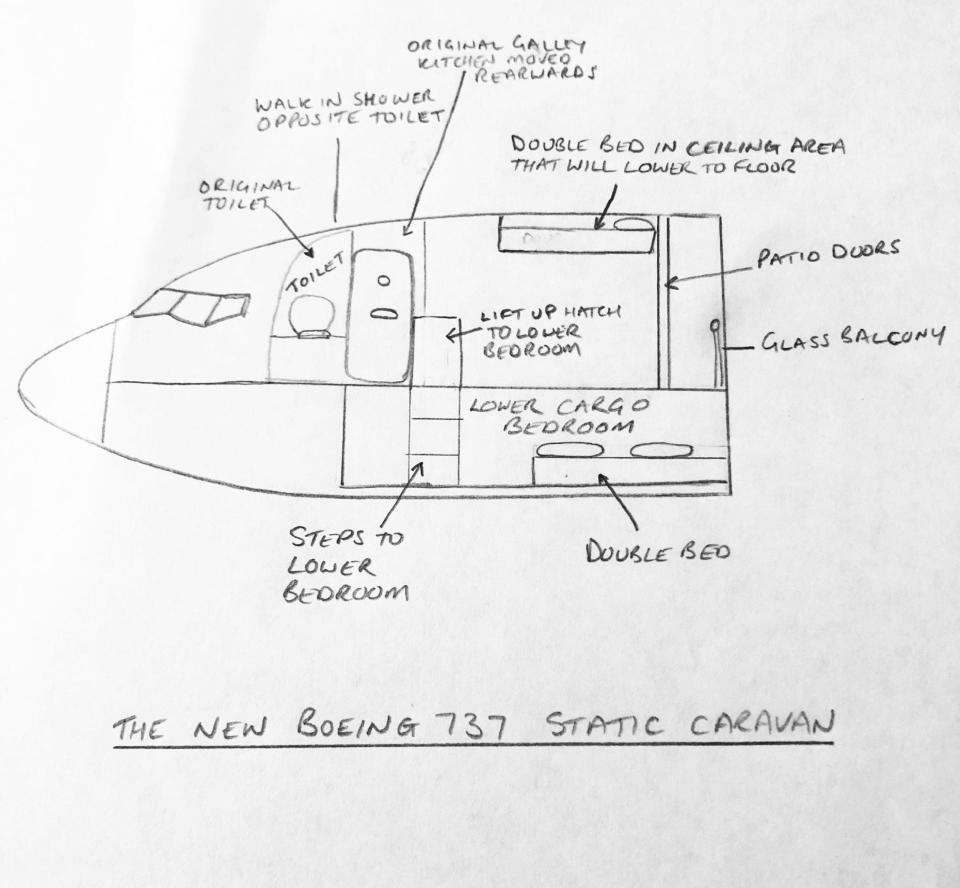 ORIGINAL GALLEY
KITCHEN MOVED
REARWARDS
WALK IN SHOWER
OPPOSITE TOILET
DOUBLE BED IN CEILING AREA
THAT WILL LOWER TO FLOOR
ORIGINAL
TOILET
TOILET
PATIO DOORS
LIFT UP HATCH
TO LOWER
BEDROOM
GLASS BALCONY
LOWER CARGO
BEDROOM
STEPS TO
LOWER
BEDROOM
DOUBLE BED
THE NEW BOEING 737 STATIC CARAVAN